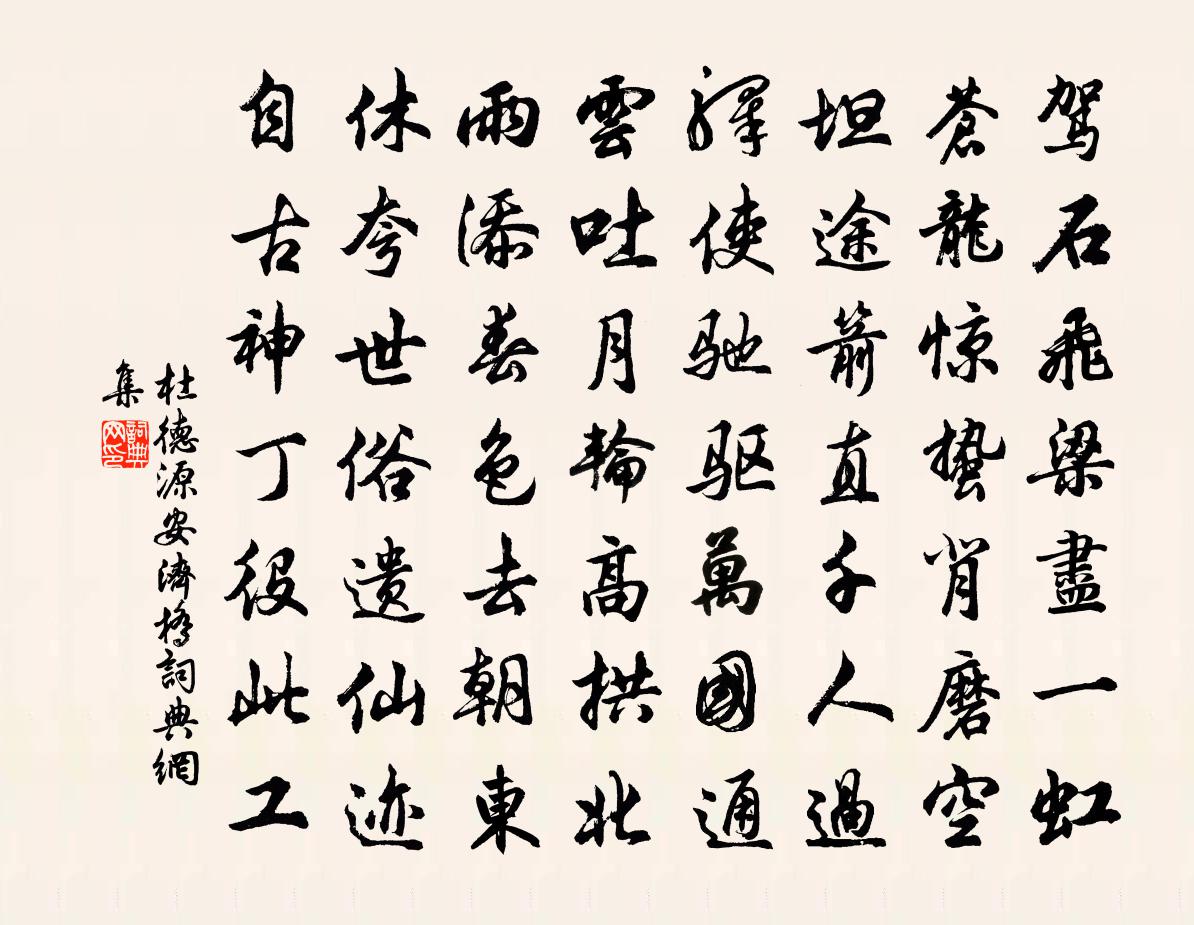 驾石飛梁盡一虹
蒼龍惊蛰背磨空
坦途箭直千人過
驿使驰驱萬國通
雲吐月輪高拱北
雨添春色去朝東
休夸世俗遗仙迹
自古神丁役此工
杜德源安濟橋詞典網
集
詞典网印